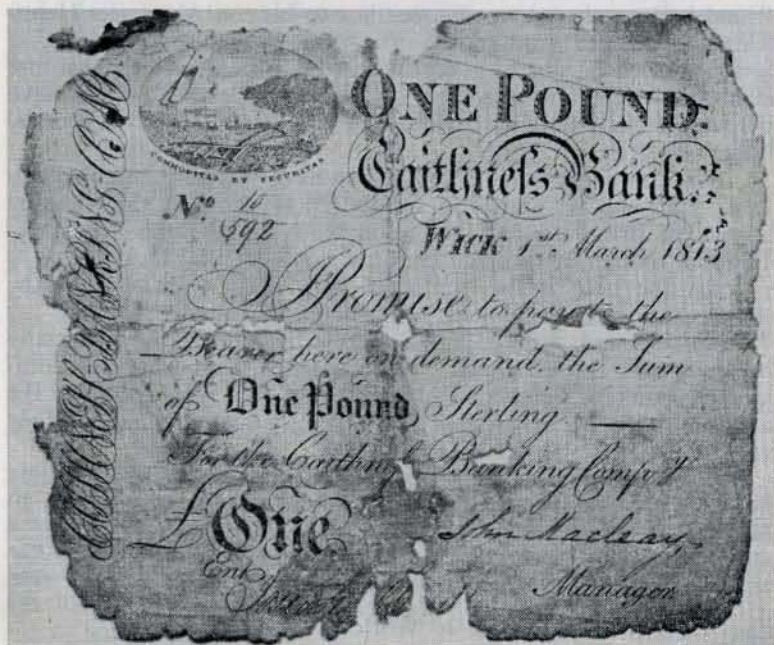 ONE POUND
Caithneſs Bank.
COMMODITAS ET SECURITAS
No. 16/592
WICK 1st. March 1813
I Promise to pay to the
Bearer here on demand, the Sum
of One Pound, Sterling
For the Caithneſs Banking Compy
£ One
John Macleay,
Ent
Manager